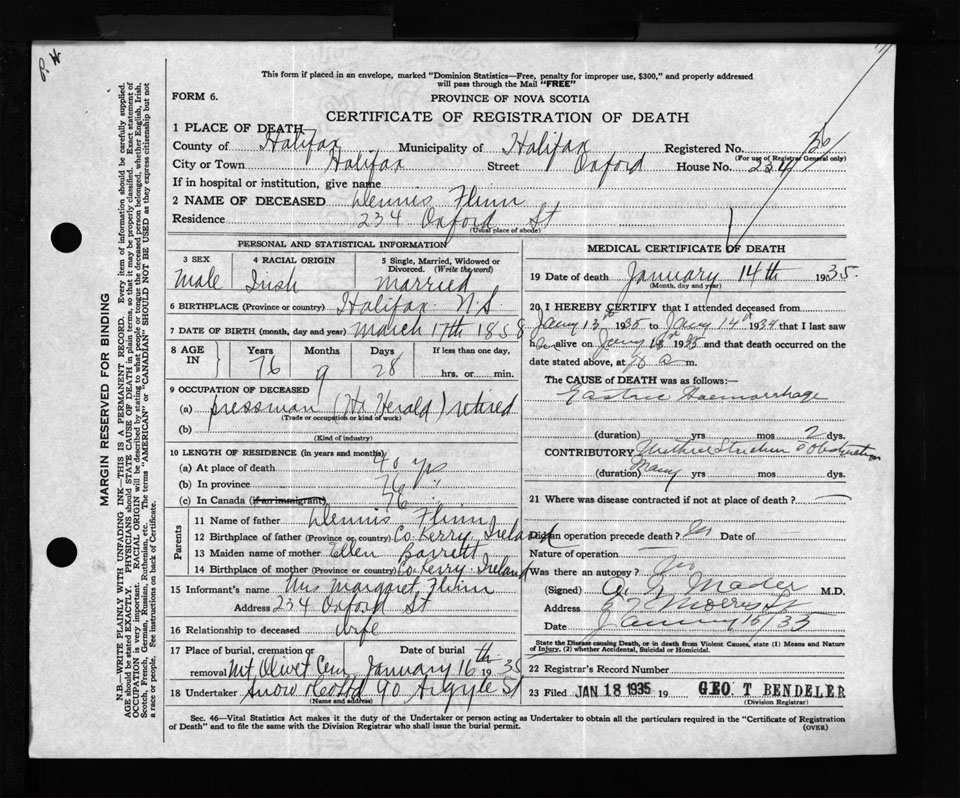 P. H
This form if placed in an envelope, marked "Dominion Statistics—Free, penalty for improper use, $300," and properly addressed
will pass through the Mail "FREE"
FORM 6.
PROVINCE OF NOVA SCOTIA
CERTIFICATE OF REGISTRATION OF DEATH
1 PLACE OF DEATH
County of Halifax Municipality of Halifax Registered No.
(For use of Registrar General only)
City or Town Halifax Street Oxford House No. 234
If in hospital or institution, give name
2 NAME OF DECEASED Dennis Flinn
Residence 234 Oxford St
(Usual place of abode)
PERSONAL AND STATISTICAL INFORMATION
3 SEX 4 RACIAL ORIGIN 5 Single, Married, Widowed or
Divorced. (Write the word)
Male Irish Married
6 BIRTHPLACE (Province or country) Halifax N.S
7 DATE OF BIRTH (month, day and year) March 17th 1858
8 AGE IN Years Months Days If less than one day,
76 9 28 hrs. or min.
9 OCCUPATION OF DECEASED
(a) pressman (Hx Herald) retired
(Trade or occupation or kind of work)
(b)
(Kind of industry)
10 LENGTH OF RESIDENCE (in years and months)
(a) At place of death 40 yrs
(b) In province 76 "
(c) In Canada (if an immigrant) 76 "
Parents
11 Name of father Dennis Flinn
12 Birthplace of father (Province or country) Co. Kerry Ireland
13 Maiden name of mother Ellen Barrett
14 Birthplace of mother (Province or country) Co. Kerry Ireland
15 Informant's name Mrs Margaret Flinn
Address 234 Oxford St
16 Relationship to deceased wife
17 Place of burial, cremation or Date of burial
removal Mt. Olivet Cem January 16th 1935
18 Undertaker Snow & Co Ltd 90 Argyle St
(Name and address)
MEDICAL CERTIFICATE OF DEATH
19 Date of death January 14th 1935.
(Month, day and year)
20 I HEREBY CERTIFY that I attended deceased from
Jany 13th 1935 to Jany 14th 1934 that I last saw
h alive on Jany 1935 and that death occurred on the
date stated above, at a m.
The CAUSE of DEATH was as follows:
Gastric Haemorrhage
(duration) yrs mos 2 dys.
CONTRIBUTORY Urethral Stricture & Obstruction
(duration) Many yrs mos dys.
21 Where was disease contracted if not at place of death?
Did an operation precede death? Date of
Nature of operation
Was there an autopsy? No
(Signed) Mader M.D.
Address 57 Morris St
Date January 15/35
State the Disease causing Death, or in death from Violent Causes, state (1) Means and Nature
of Injury, (2) whether Accidental, Suicidal or Homicidal.
22 Registrar's Record Number
23 Filed JAN 18 1935 19 GEO. T BENDELER
(Division Registrar)
Sec. 46—Vital Statistics Act makes it the duty of the Undertaker or person acting as Undertaker to obtain all the particulars required in the "Certificate of Registration
of Death" and to file the same with the Division Registrar who shall issue the burial permit.
(OVER)
MARGIN RESERVED FOR BINDING
N.B.—WRITE PLAINLY WITH UNFADING INK—THIS IS A PERMANENT RECORD. Every item of information should be carefully supplied.
AGE should be stated EXACTLY. PHYSICIANS should STATE CAUSE OF DEATH in plain terms, so that it may be properly classified. Exact statement of
OCCUPATION is very important. RACIAL ORIGIN will be described by stating to what people or tongue the deceased person belonged, whether English, Irish,
Scotch, French, German, Russian, Ruthenian, etc. The terms "AMERICAN" or "CANADIAN" SHOULD NOT BE USED as they express citizenship but not
a race or people. See instructions on back of Certificate.